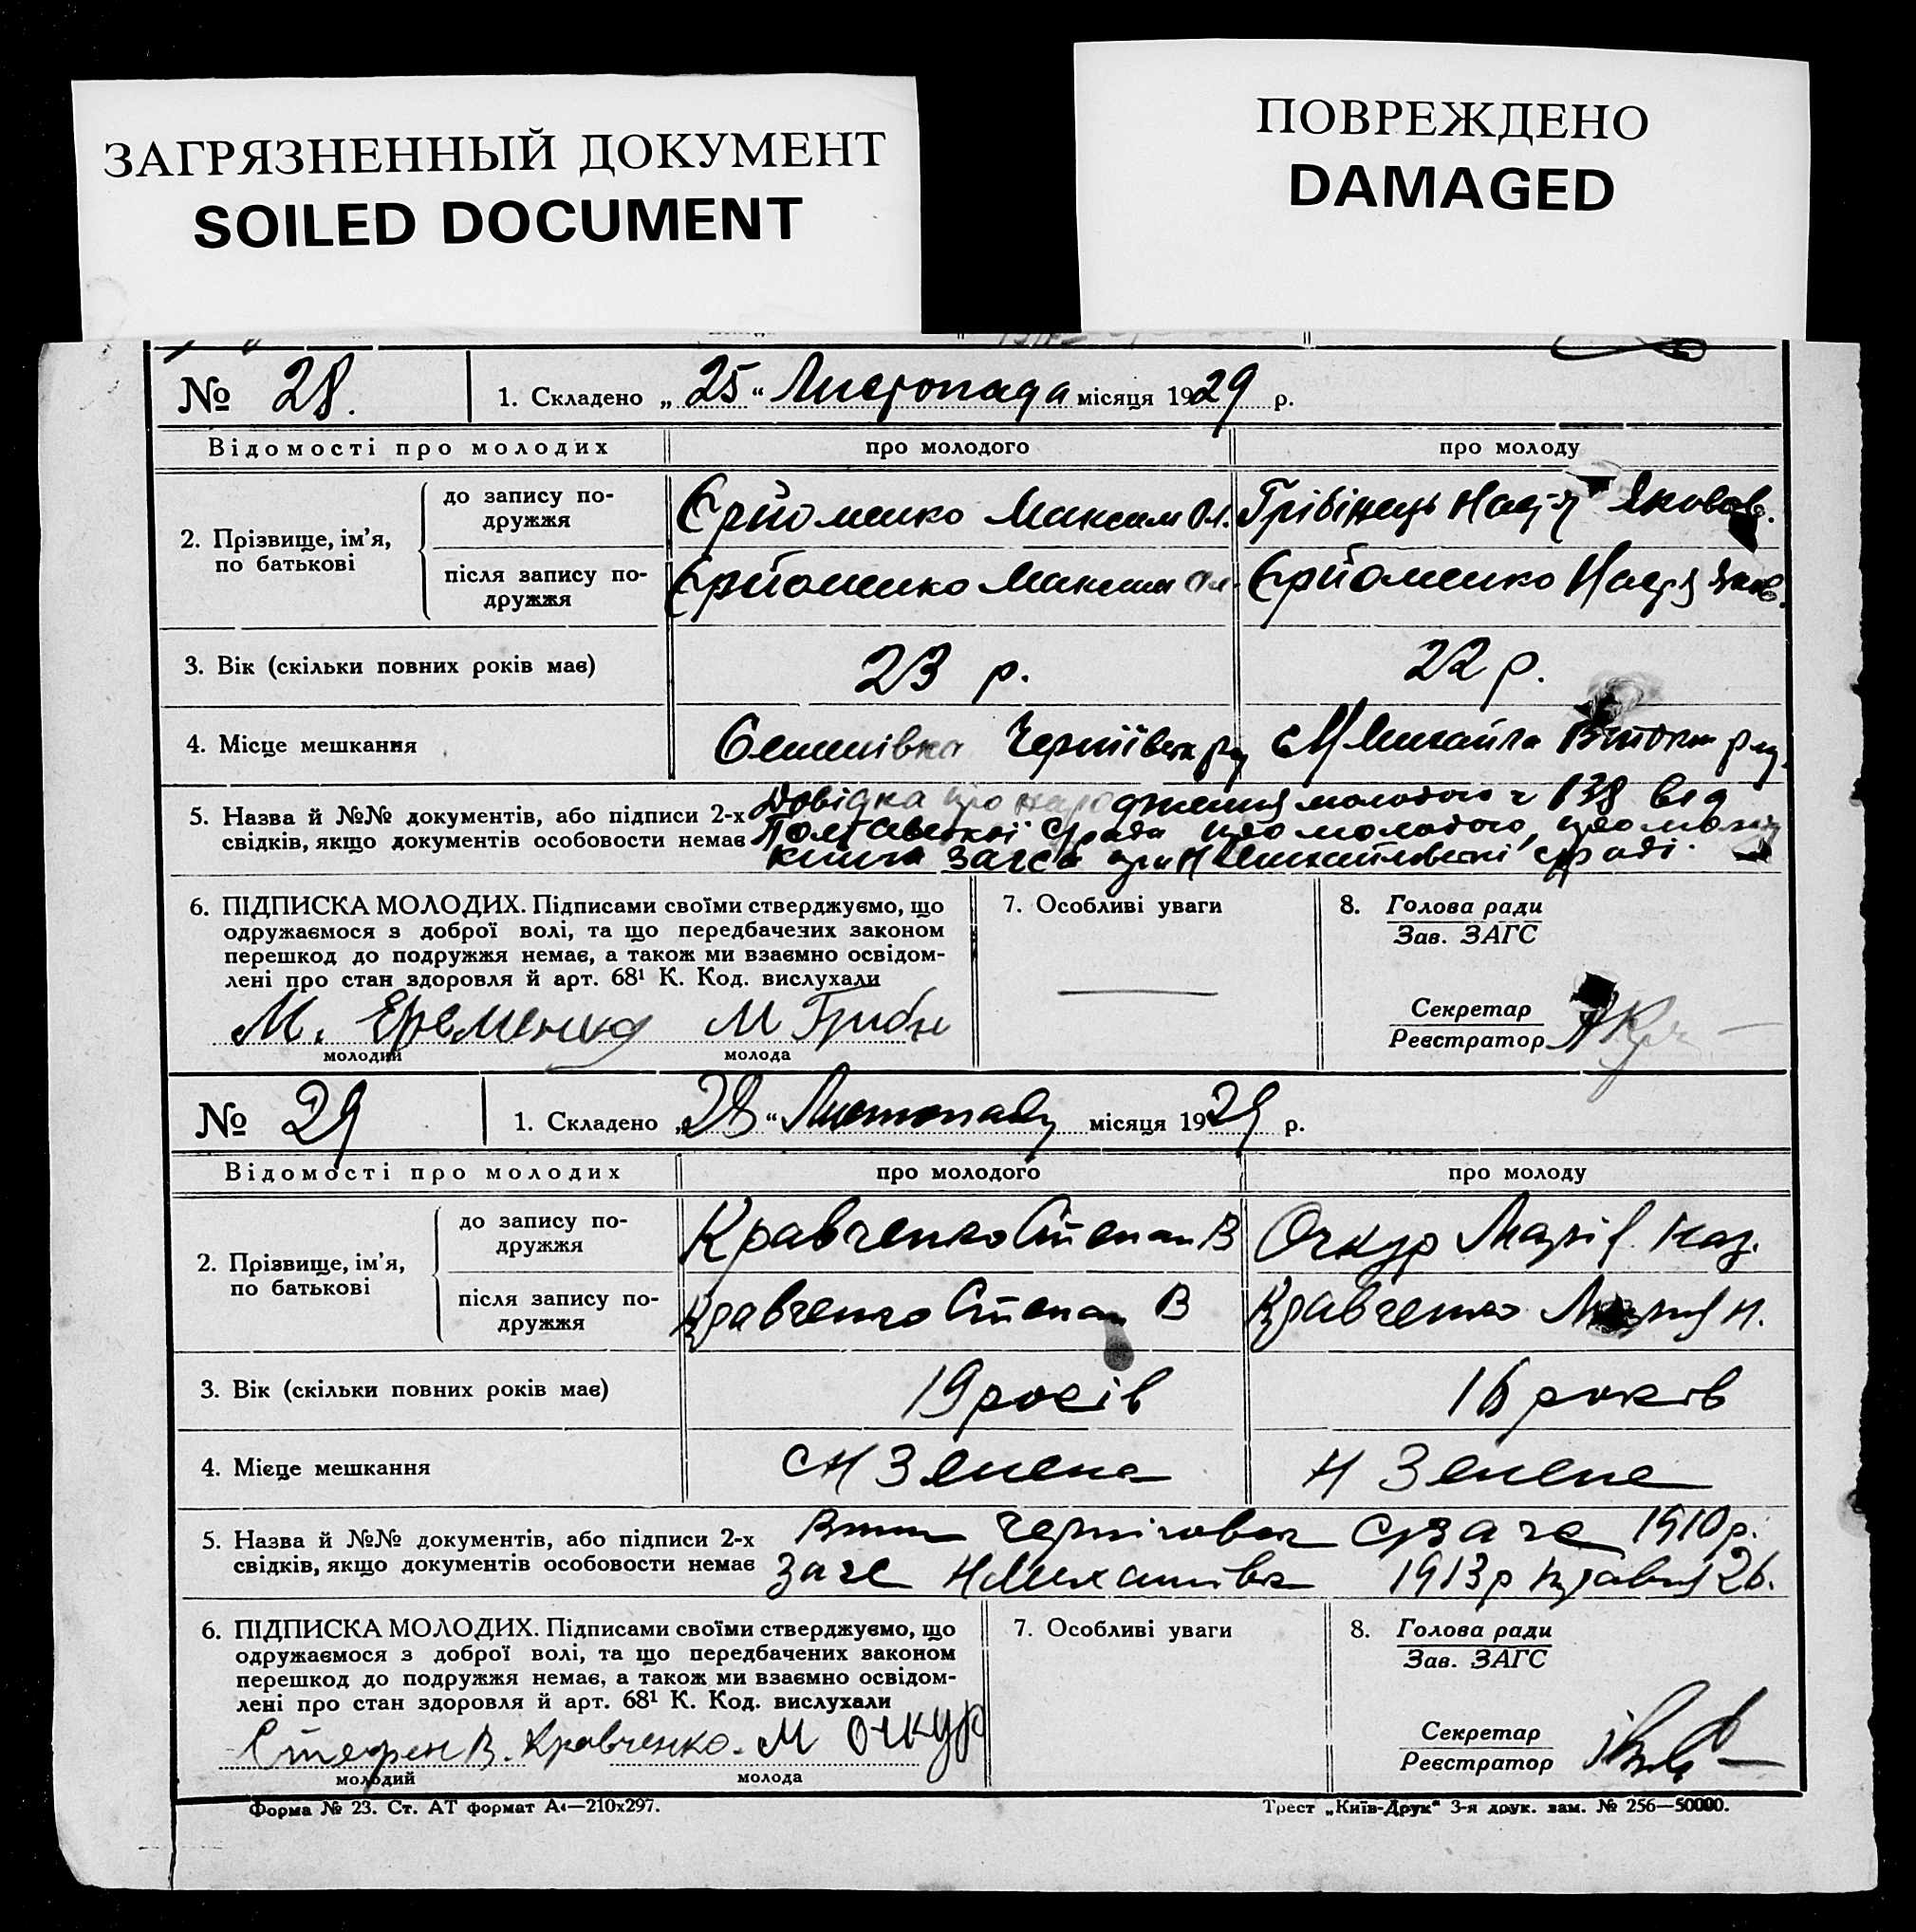 ЗАГРЯЗНЕННЫЙ ДОКУМЕНТ
SOILED DOCUMENT
ПОВРЕЖДЕНО
DAMAGED
№ 28. 1. Складено „25“ Листопада місяця 1929 р.
Відомості про молодих про молодого про молоду
2. Прізвище, ім’я, по батькові
до запису подружжя Єрйоменко Максим Ол. Грібінець Надія Яковов.
після запису подружжя Єрйоменко Максим Ол. Єрйоменко Надя Яков.
3. Вік (скільки повних років має) 23 р. 22 р.
4. Місце мешкання
5. Назва й №№ документів, або підписи 2-х Довідка про народження молодого ч 138 від
свідків, якщо документів особовости немає Полтавської про молодого,
книга загса при
6. ПІДПИСКА МОЛОДИХ. Підписами своїми стверджуємо, що
одружаємося з доброї волі, та що передбачених законом
перешкод до подружжя немає, а також ми взаємно освідом-
лені про стан здоровля й арт. 68¹ К. Код. вислухали
М. Еременко М Грибін
молодий молода
7. Особливі уваги
8. Голова ради
Зав. ЗАГС
Секретар
Реєстратор
№ 29 1. Складено „28“ Листопаду місяця 1929 р.
Відомості про молодих про молодого про молоду
2. Прізвище, ім’я, по батькові
до запису подружжя Кравченко Степан В Очкур Марія
після запису подружжя Кравченко Степан В Кравченко Марія Н.
3. Вік (скільки повних років має) 19 років 16 років
4. Місце мешкання
5. Назва й №№ документів, або підписи 2-х 1910 р.
свідків, якщо документів особовости немає Загс 1913 р 26.
6. ПІДПИСКА МОЛОДИХ. Підписами своїми стверджуємо, що
одружаємося з доброї волі, та що передбачених законом
перешкод до подружжя немає, а також ми взаємно освідом-
лені про стан здоровля й арт. 68¹ К. Код. вислухали
В. Кравченко. М Очкур
молодий молода
7. Особливі уваги
8. Голова ради
Зав. ЗАГС
Секретар
Реєстратор
Форма № 23. Ст. АТ формат А₄—210х297.
Трест „Київ-Друк“ 3-я друк. зам. № 256—50000.